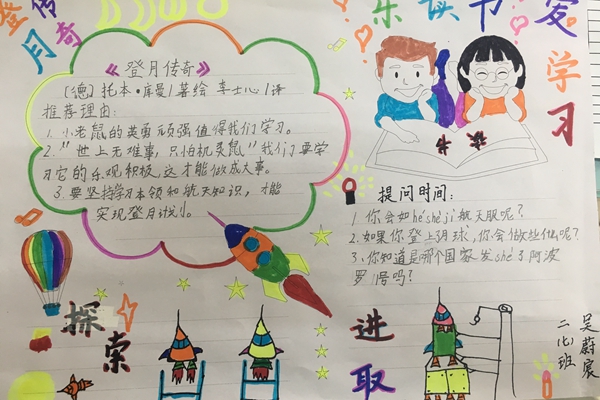 登月传奇
乐读书 爱学习
《登月传奇》
〔德〕托本·库曼/著绘 韦士心/译
推荐理由:
1.小老鼠的英勇顽强值得我们学习。
2."世上无难事,只怕机灵鼠"我们要学
习它的乐观积极,这才能做成大事。
3.要坚持学习本领和航天知识,才能
实现登月计划。
提问时间:
1.你会如hé shè jì航天服呢?
2.如果你登上月球,你会做些什么呢?
3.你知道是哪个国家发shè了阿波
罗11号吗?
探索
进取
二(1)班
吴蔚宸